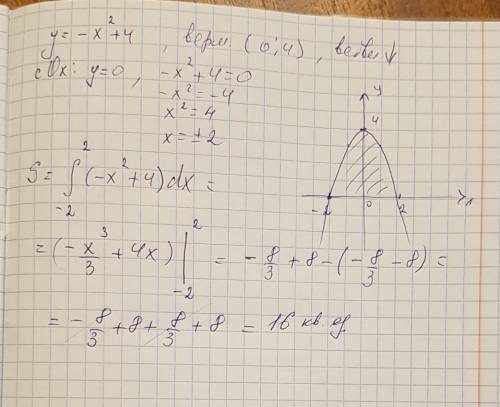 y = -x² + 4 , верш. (0; 4) , ветви ↓
с Ox: y=0 , -x² + 4 = 0
-x² = -4
x² = 4
x = ± 2
S = ∫₋₂² (-x² + 4) dx =
= (-x³/3 + 4x) |₋₂² = -8/3 + 8 - (-8/3 - 8) =
= -8/3 + 8 + 8/3 + 8 = 16 кв. ед.
y
4
-2 0 2 x